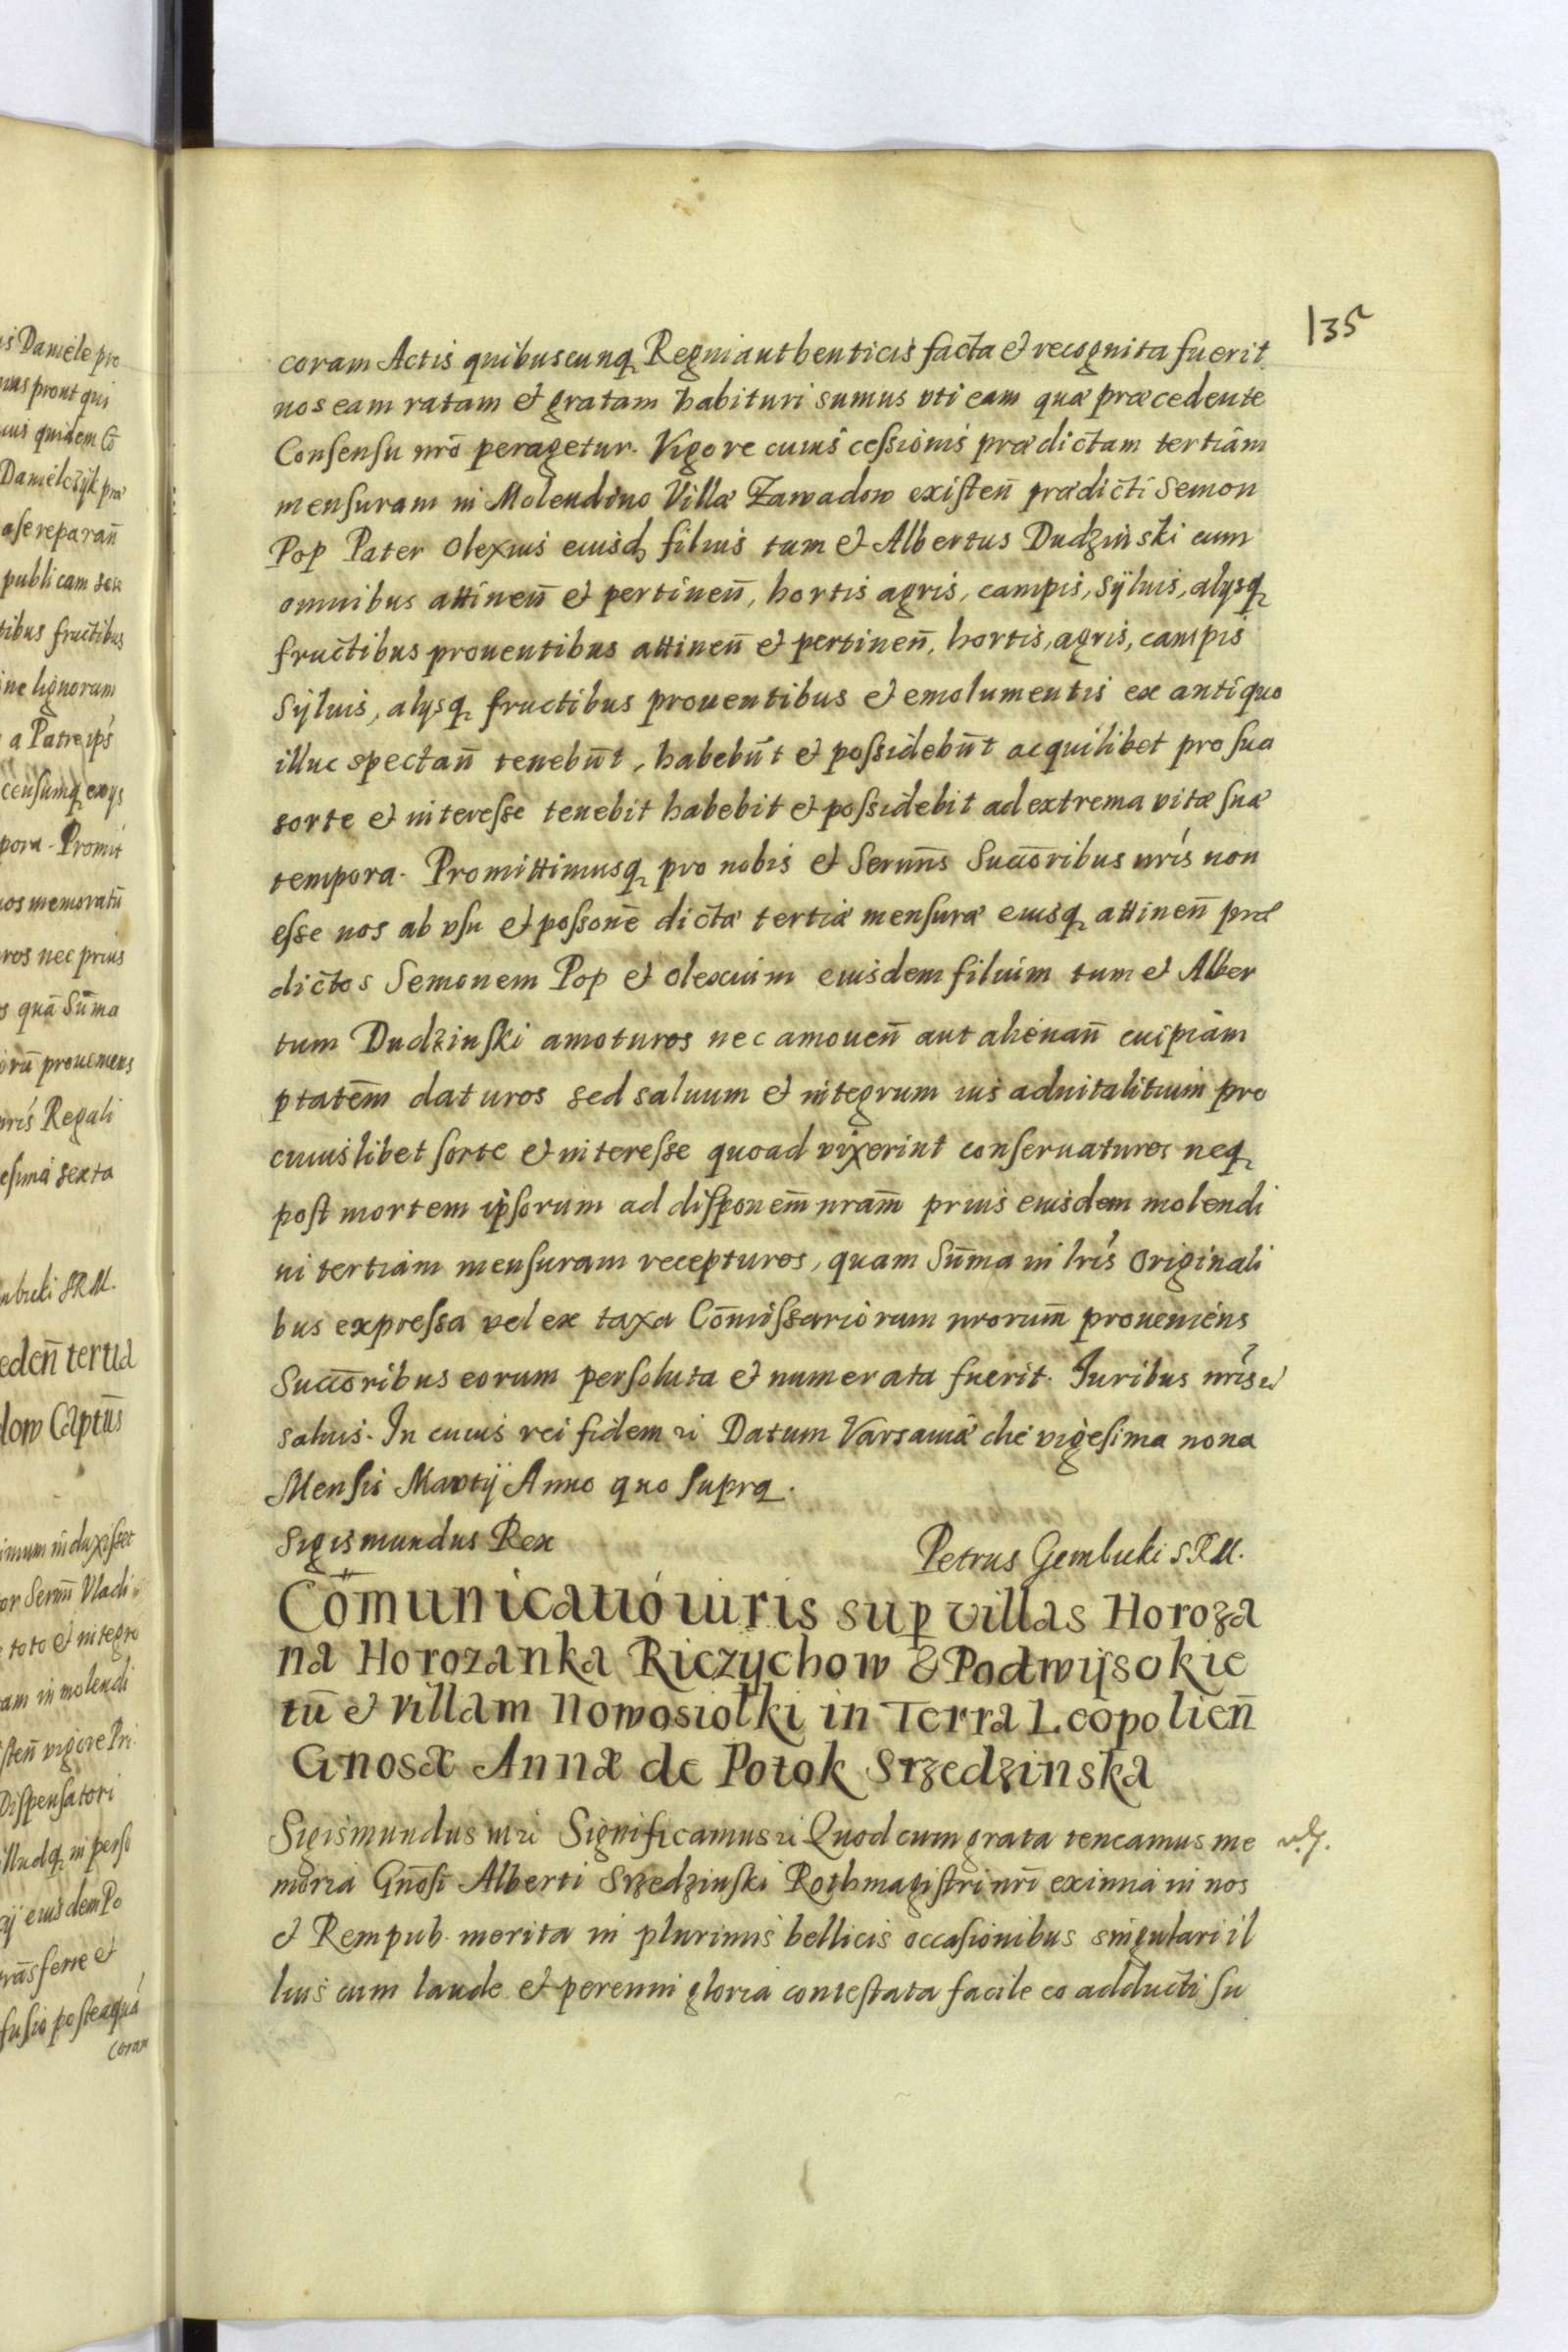 135
coram Actis quibuscunq Regni authenticis facta et recognita fuerit
nos eam ratam et gratam habituri sumus uti eam quæ præcedente
Consensu nrō peragetur. Vigore cuius cessionis prædictam tertiam
mensuram in Molendino Villæ Zawadow existen̄ prædicti Semon
Pop Pater Olexius eiusd filius tum et Albertus Dudzinski cum
omnibus attinen̄ et pertinen̄, hortis agris, campis, sÿluis, alysq
fructibus prouentibus attinen̄ et pertinen̄, hortis, agris, campis
Sÿluis, alysq fructibus prouentibus et emolumentis ex antiquo
illuc spectan̄ tenebūt, habebūt et possidebūt ac quilibet pro sua
sorte et interesse tenebit habebit et possidebit ad extrema vitæ suæ
tempora. Promittimusq pro nobis et Serenn̄s Succōribus nrīs non
esse nos ab vsu et possonē dictæ tertiæ mensuræ eiusq attinen̄ præ
dictos Semonem Pop et Olexium eiusdem filium tum et Alber
tum Dudzinski amoturos nec amouen̄ aut alienan̄ cuipiam
ptatēm daturos sed saluum et integrum ius aduitalitium pro
cuiuslibet sorte et interesse quoad vixerint conseruaturos neq
post mortem ipsorum ad disponem̄ nram̄ prius eiusdem molendi
ni tertiam mensuram recepturos, quam Sum̄a in lrīs Originali
bus expressa vel ex taxa Com̄issariorum nrorum̄ proueniens
Succōribus eorum persoluta et numerata fuerit. Iuribus nrīs
saluis. In cuius rei fidem Datum Varsauiæ die vigesima nona
Mensis Martÿ Anno quo supra.
Sigismundus Rex
Petrus Gembicki S.R.M.
Com̄unicatio iuris sup villas Horoza
na Horozanka Riczychow & Podwÿsokie
tū et villam Nowosiolki in Terra Leopolien̄
Gnosæ Annæ de Potok Srzedzinska
Sigismundus Significamus Quod cum grata teneamus me
moria Gnōsi Alberti Srzedzinski Rothmagistri nrī eximia in nos
et Rempub. merita in plurimis bellicis occasionibus singulari il
lius cum laude et perenni gloria contestata facile eo adducti su